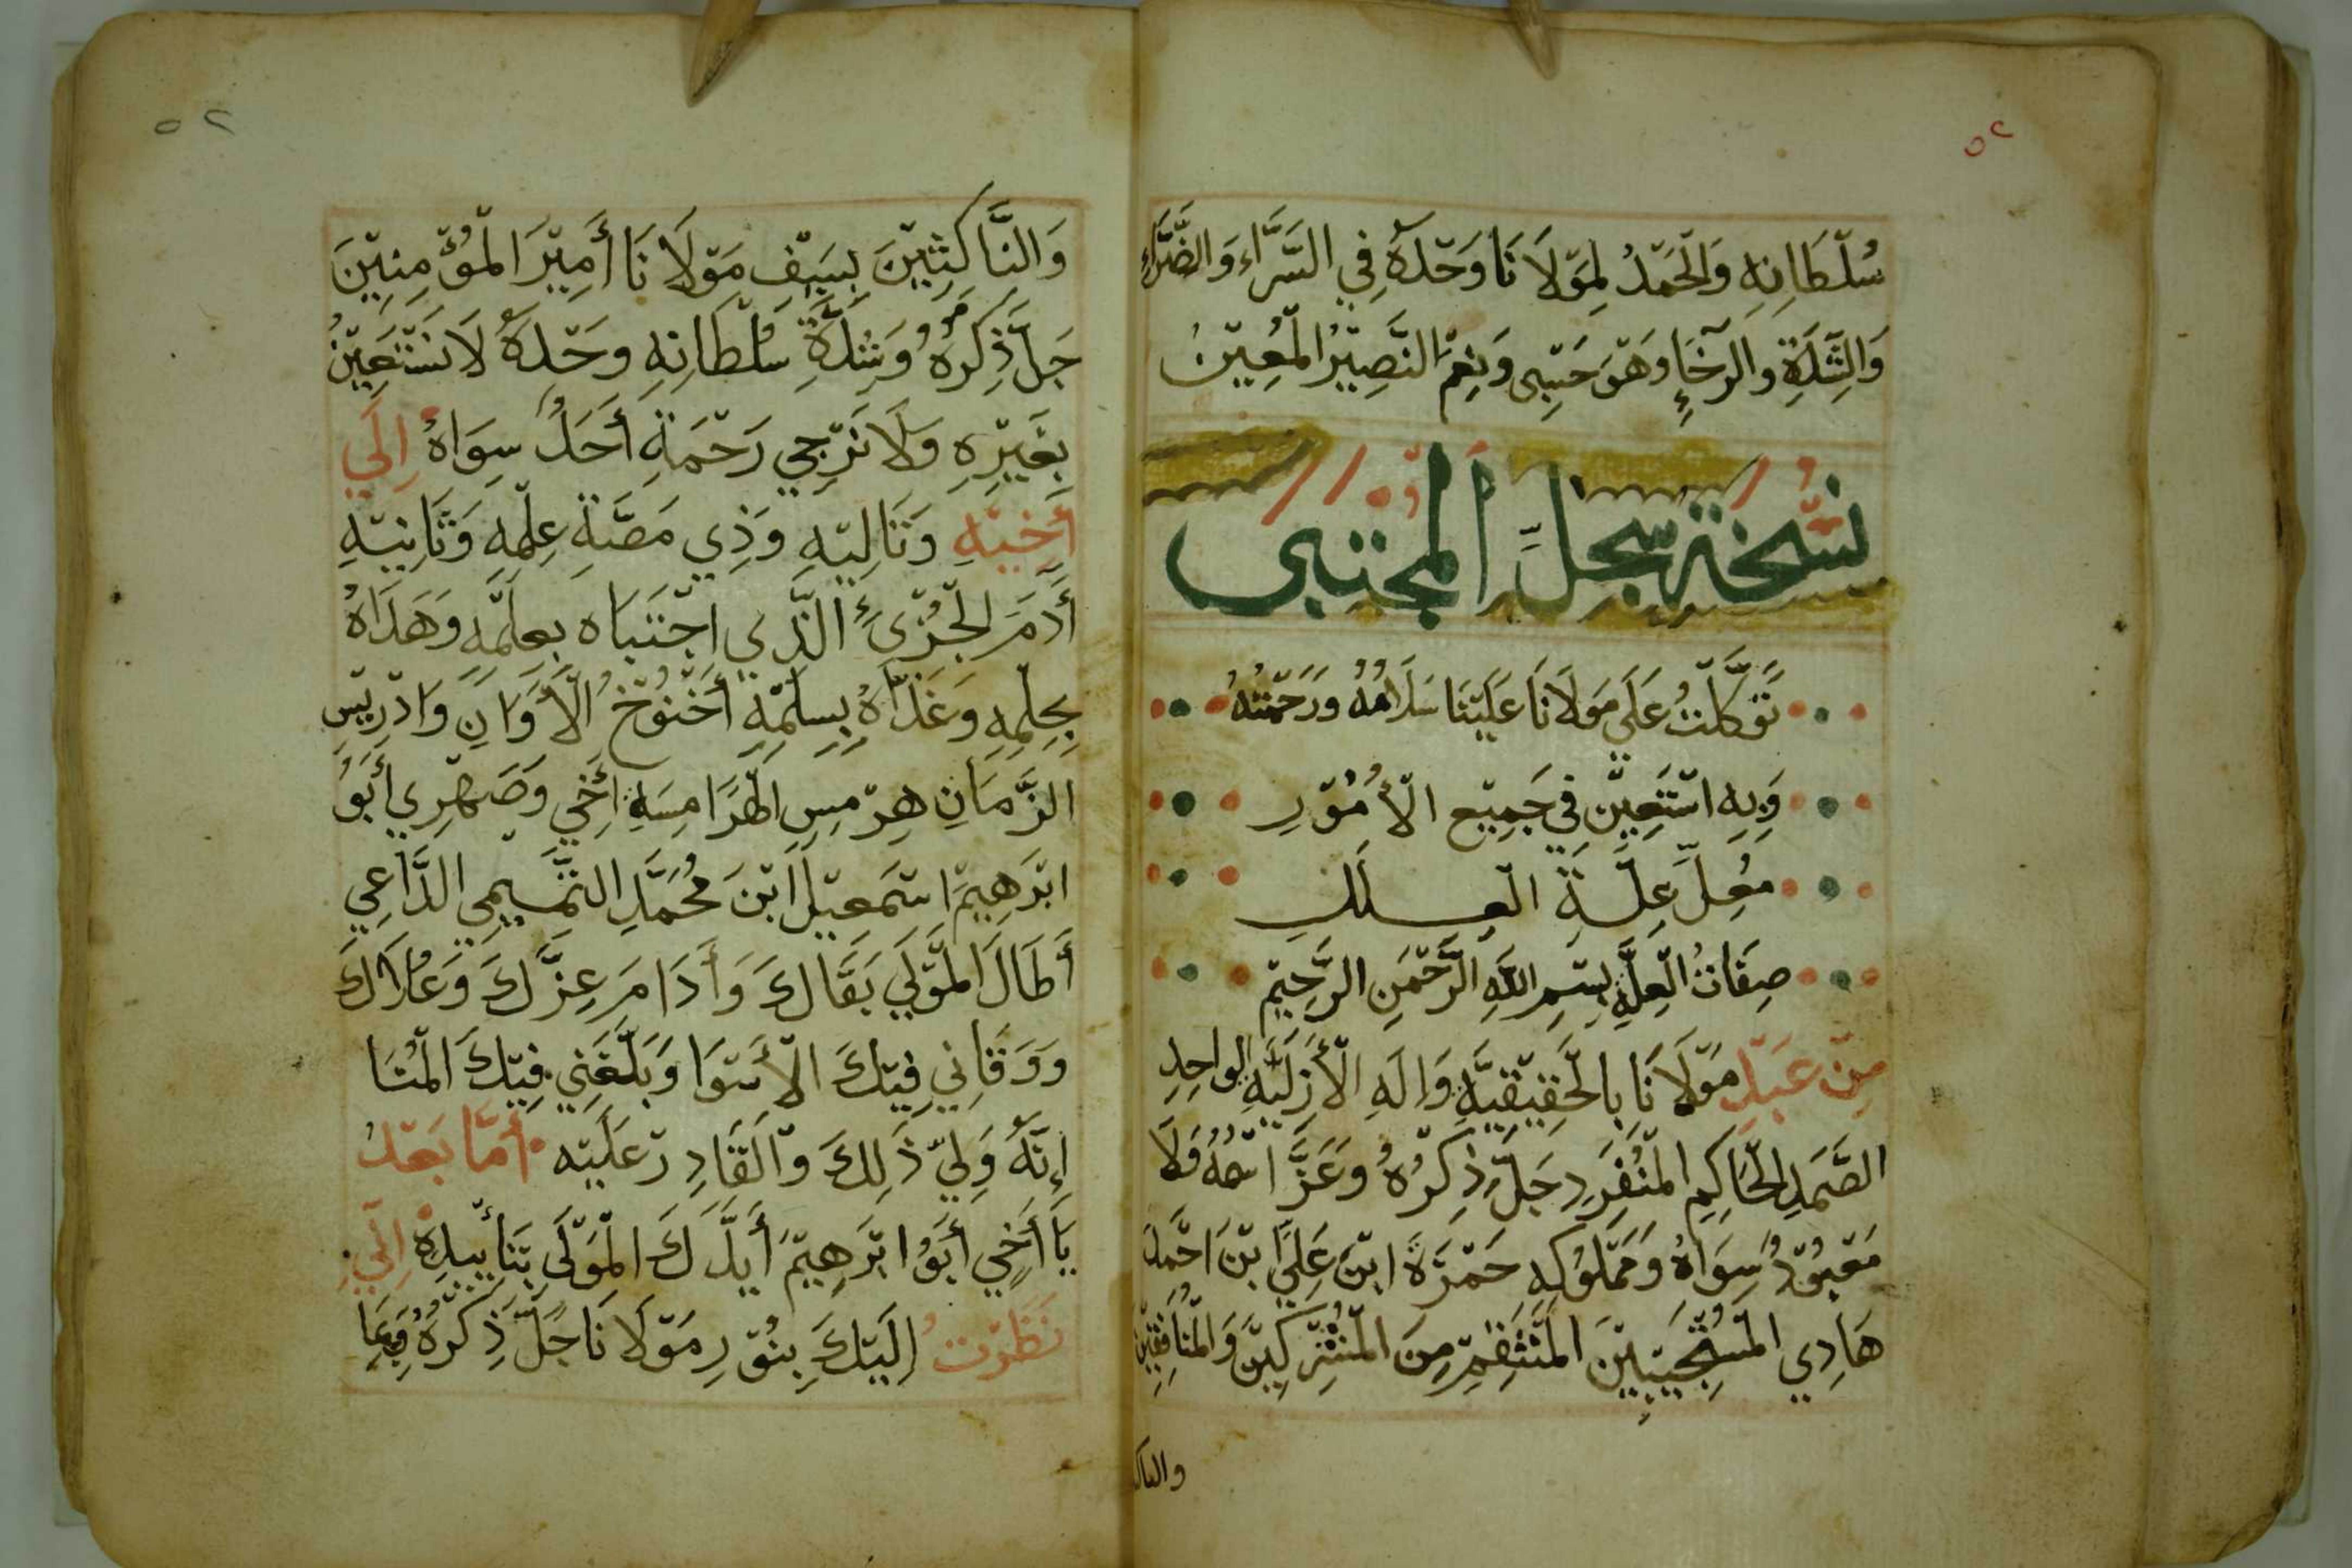 ٥٢
سُلْطَانِهِ وَالْحَمْدُ لِمَوْلَانَا وَحْدَهُ فِي السَّرَّاءِ وَالضَّرَّاءِ
وَالشِّدَّةِ والرَّخَاءِ وَهْوَ حَسْبِي وَنِعْمَ النَّصِيْرُ الْمُعِيْنُ
نُسْخَةُ سِجِلِّ الْمُجْتَبَى
تَوَكَّلْتُ عَلَى مَوْلَانَا عَلَيْنَا سَلَامُهُ وَرَحْمَتُهُ
وَبِهِ اسْتَعِيْنُ فِي جَمِيْعِ الْأُمُوْرِ
مُعِلِّ عِلَّةِ الْعِلَلِ
صِفَاتُ الْعِلَّةِ بِسْمِ اللهِ الرَّحْمَنِ الرَّحِيْمِ
مِنْ عَبْدِ مَوْلَانَا بِالْحَقِيْقِيَّةِ وَالَهِ الْأَزَلِيَّهِ الواحِدِ
الصَّمَدِ الْحَاكِمِ الْمُنْفَرِدِ جَلَّ ذِكْرُهُ وَعَزَّ اسْمُهُ وَلَا
مَعْبُوْدُ سِوَاهُ وَمَمْلُوْكِهِ حَمْزَةَ ابْنِ عَلِيِّ بْنَ احْمَدَ
هَادِي الْمُسْتَجِيْبِيْنَ الْمُنْتَقِمْ مِنَ الْمُشْرِكِيْنَ وَالْمُنَافِقِيْنَ
والناك
٥٢
وَالنَّاكِثِيْنَ بِسَيْفِ مَوْلَانَا أَمِيْرَ الْمُؤْمِنِيْنَ
جَلَّ ذِكْرُهُ وَشِدَّةِ سُلْطَانِهِ وَحْدَهُ لَا نَسْتَعِيْنُ
بِغَيْرِهِ وَلَا نَرْجِي رَحْمَةِ أَحَدُ سِوَاهُ اِلَى
أَخِيْهِ وَتَالِيْهِ وَذِي مَصَّةِ عِلْمِهِ وَثَانِيْهِ
أَدَمَ الْجُزْئِ الَّذِي اجْتَبَاه بِعِلْمِهِ وَهَدَاهُ
بِحِلْمِهِ وَغَذَّاهُ بِسِلْمِهِ أَخْنُوْخُ الْأَوَانِ وَادْرِيْسِ
الزَّمَانِ هِرْمِسِ الْهَرَامِسَةِ أَخِي وَصَهْرِي أَبَوُ
ابْرَهِيْمَ اسْمَعِيْلَ ابْنَ مُحَمَّدِ التَّمِيْمِي الدَّاعِي
أَطَالَ الْمَوْلَى بَقَاكَ وَأَدَامَ عِزَّكَ وَعُلَاكَ
وَوَقَانِي فِيْكَ الْأَسْوَا وَبَلَّغَنِي فِيْكَ الْمُنَا
إِنَّهُ وَلِيّ ذَلِكَ وَالْقَادِرْ عَلَيْهِ أَمَّا بَعْدُ
يَا أَخِي أَبُو ابْرَهِيْمَ أَيَّدَكَ الْمَوْلَى بِتَأْيِيْدِهِ اِنِّي
نَظَرْتُ اِلَيْكَ بِنُوْرِ مَوْلَانَا جَلَّ ذِكْرُهُ وَبِمَا